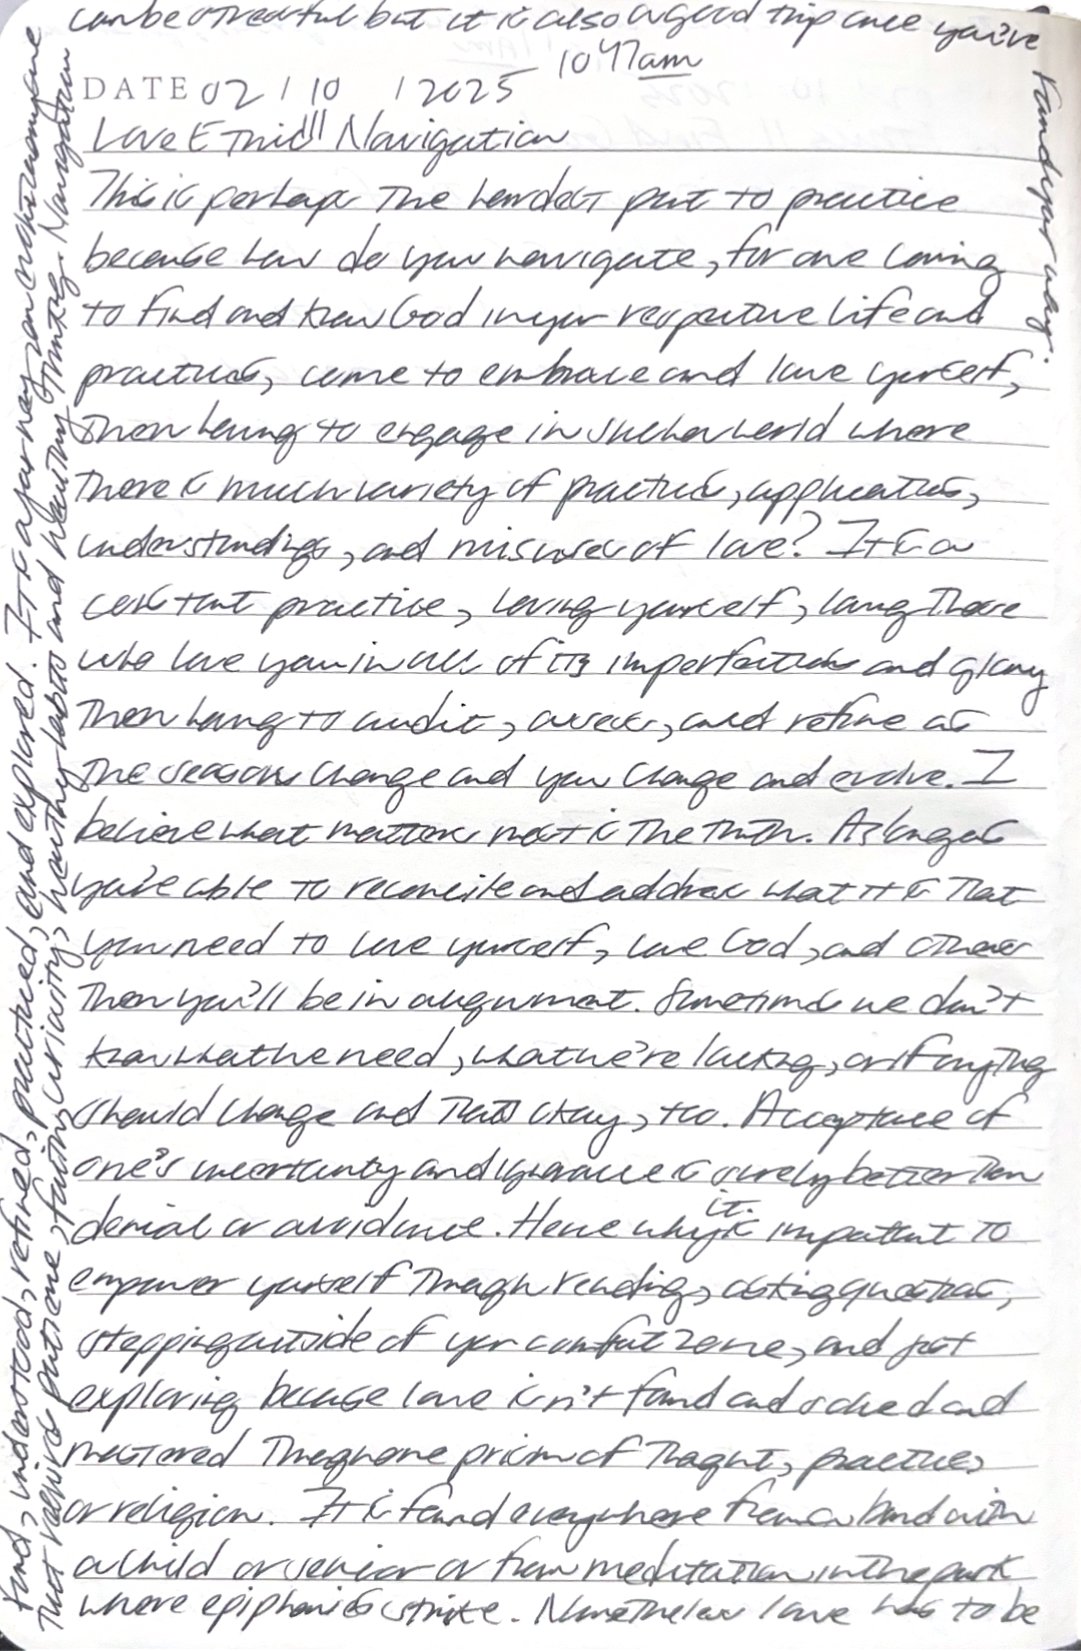 10:47am
DATE 02 / 10 / 2025
Love Ethic III Navigation
This is perhaps the hardest part to practice
because how do you navigate, for one coming
to find and know God in your respective life and
practices, come to embrace and love yourself,
then having to engage in such a world where
there is much variety of practices, applications,
understandings, and misuses of love? It is a
constant practice, loving yourself, loving those
who love you in all of its imperfections and glory
then having to audit, assess, and refine as
the seasons change and you change and evolve. I
believe what matters most is the truth. As long as
you're able to reconcile and address what it is that
you need to love yourself, love God, and others
then you'll be in alignment. Sometimes we don't
know what we need, what we're lacking, or if anything
should change and that's okay, too. Acceptance of
one's uncertainty and ignorance is surely better than
denial or avoidance. Hence why it is important to
empower yourself through reading, asking questions,
stepping outside of your comfort zone, and just
exploring because love isn't found and and
mastered through one prism of thought, practices
or religion. It is found everywhere from a bond with
a child or senior or from meditation in the park
where epiphanies strike. Nonetheless love has to be
found, understood, refined, practiced, and explored. It is a journey
that requires patience, curiosity, healthy habits and healthy thinking. Navigation
can be stressful but it is also a good trip once you've
found your way.